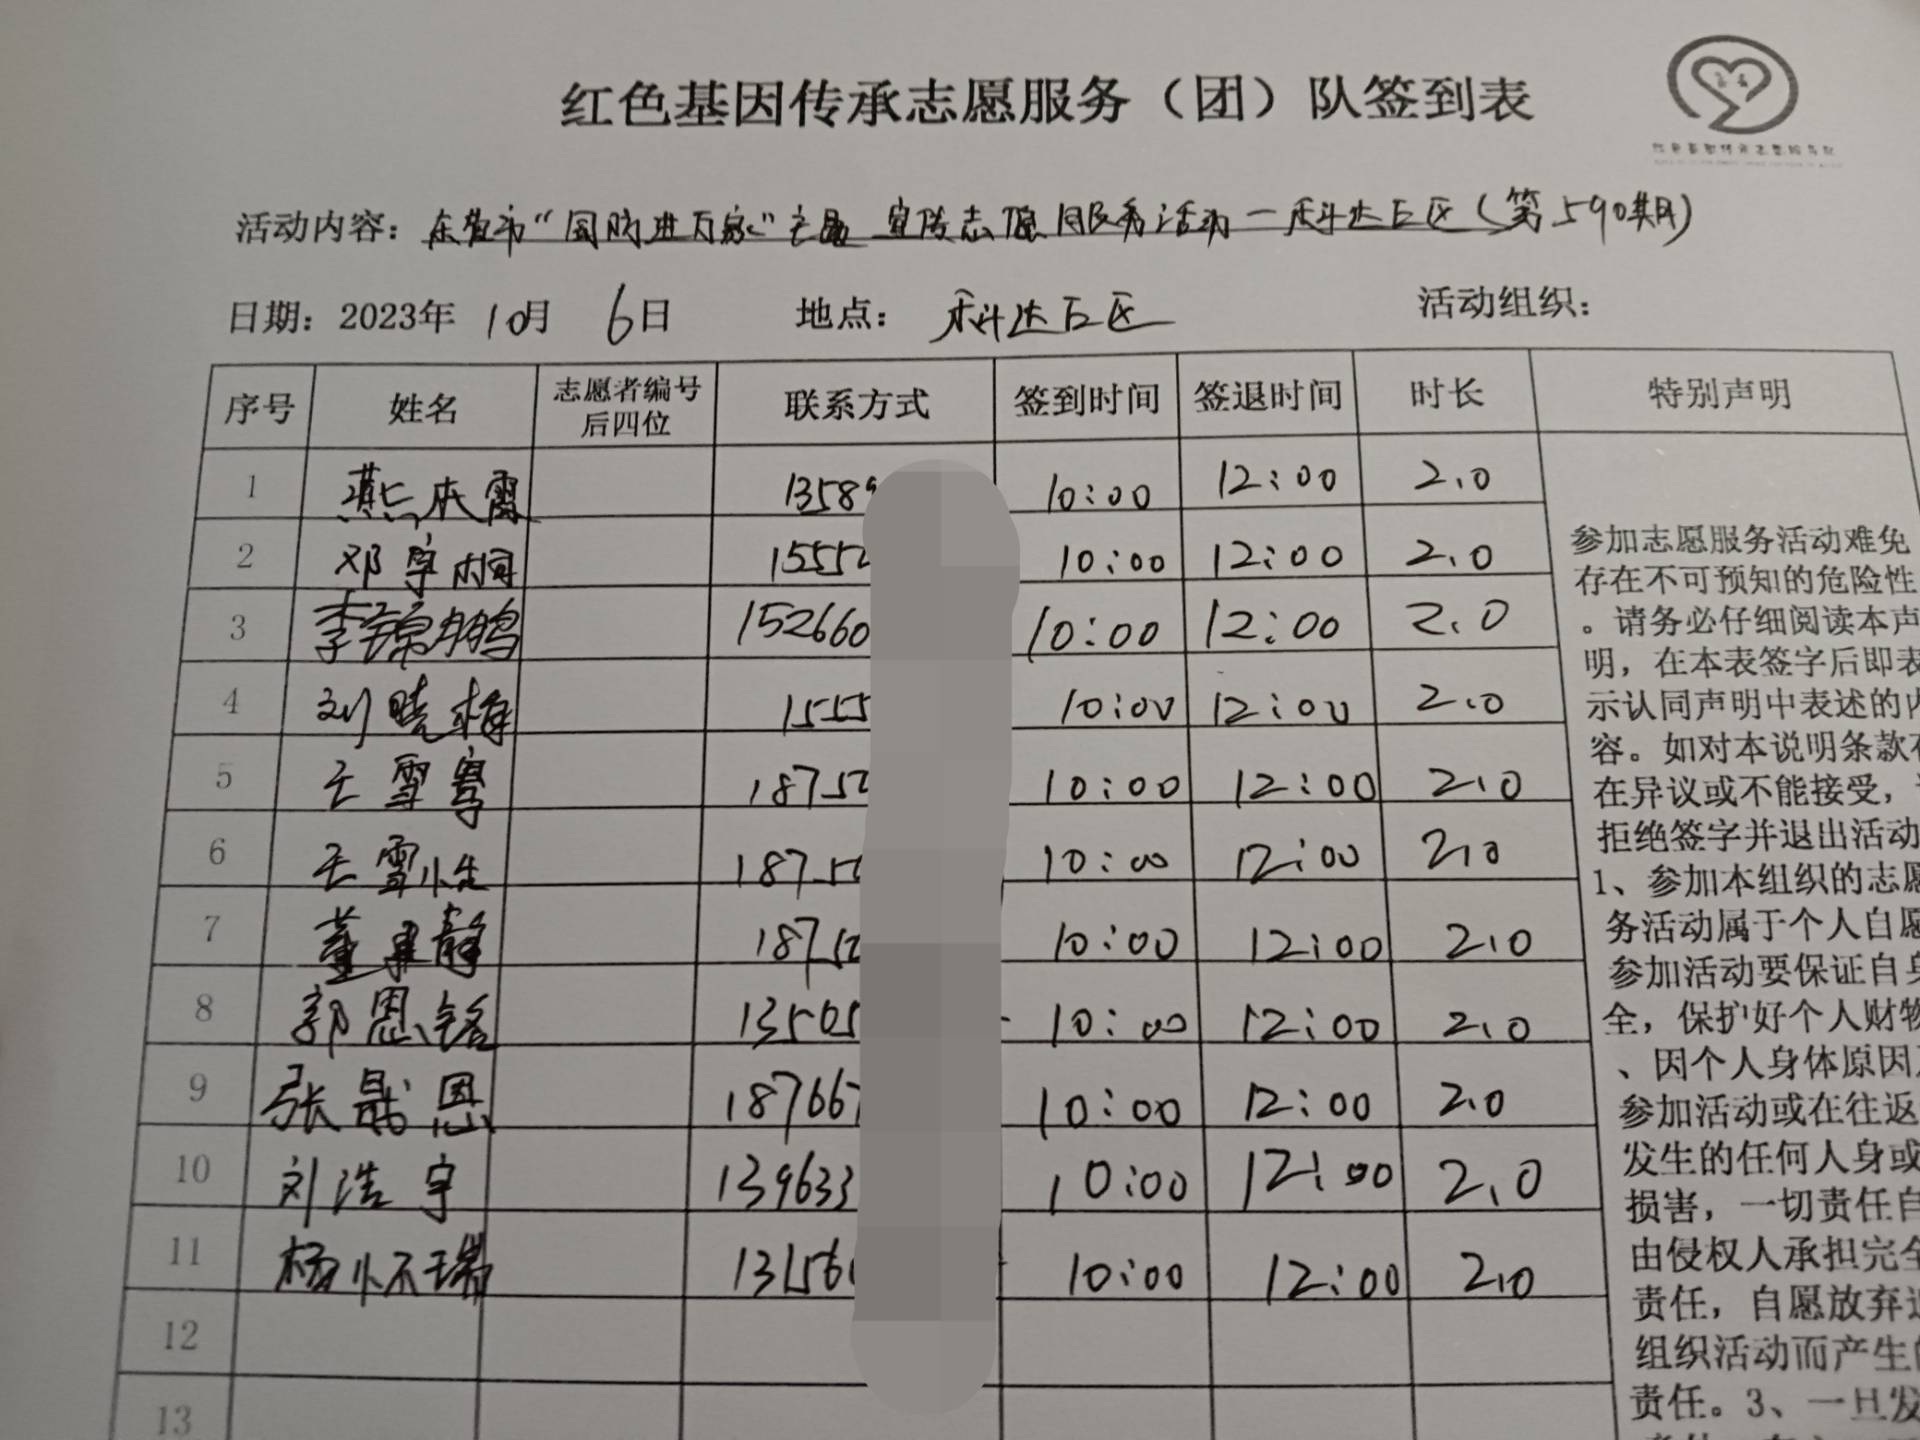 红色基因传承志愿服务（团）队签到表
活动内容：东营市“国防进万家”主题宣传志愿服务活动—科达社区（第590期）
日期：2023年10月6日 地点：科达社区 活动组织：
序号 姓名 志愿者编号后四位 联系方式 签到时间 签退时间 时长 特别声明
1 燕本霄 1358 10:00 12:00 2.0
2 邓宇桐 1555 10:00 12:00 2.0
3 李锦鹏 152660 10:00 12:00 2.0
4 刘晓梅 1555 10:00 12:00 2.0
5 王雪骞 1875 10:00 12:00 2.0
6 王雪 1875 10:00 12:00 2.0
7 董 静 187 10:00 12:00 2.0
8 郭恩铭 13505 10:00 12:00 2.0
9 张 恩 18766 10:00 12:00 2.0
10 刘浩宇 139633 10:00 12:00 2.0
11 杨怀瑞 13156 10:00 12:00 2.0
12
13
参加志愿服务活动难免
存在不可预知的危险性
。请务必仔细阅读本声
明，在本表签字后即表
示认同声明中表述的内
容。如对本说明条款存
在异议或不能接受，
拒绝签字并退出活动
1、参加本组织的志愿
务活动属于个人自愿
参加活动要保证自身
全，保护好个人财物
、因个人身体原因
参加活动或在往返
发生的任何人身或
损害，一切责任自
由侵权人承担完全
责任，自愿放弃追
组织活动而产生的
责任。3、一旦发